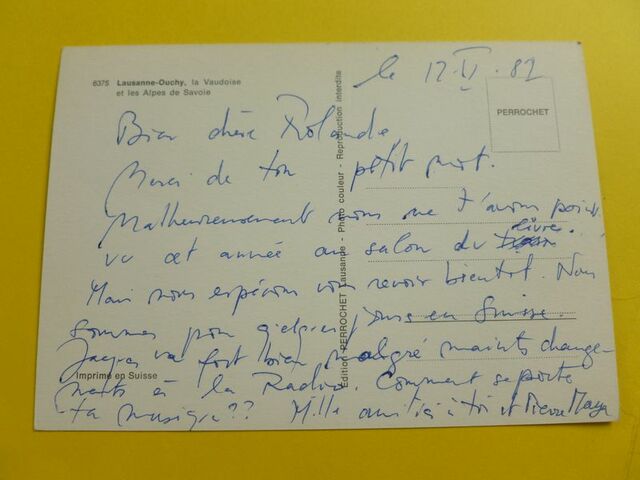 6375 Lausanne-Ouchy, la Vaudoise
et les Alpes de Savoie
le 12.VI.82
PERROCHET
Bien chère Rolande
Merci de ton petit mot.
Malheureusement nous ne t'avons point
vu cet année au salon du livre.
Mais nous espérons vous revoir bientôt. Nous
sommes pour quelques jours en Suisse.
Jacques va fort bien malgré maints change-
ments à la Radio. Comment se porte
ta musique?? Mille amitiés à toi et Pierre Maya
Imprimé en Suisse
Edition PERROCHET Lausanne - Photo couleur - Reproduction interdite